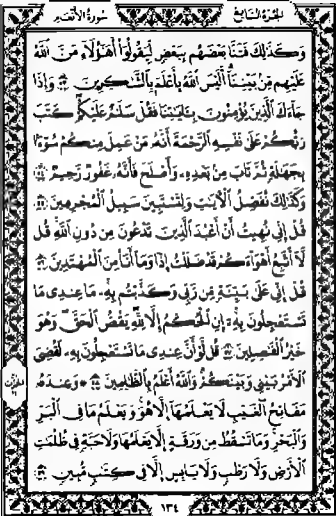 الجزء السابع سورة الأنعام
وَكَذَٰلِكَ فَتَنَّا بَعْضَهُم بِبَعْضٍ لِّيَقُولُوٓا۟ أَهَٰٓؤُلَآءِ مَنَّ ٱللَّهُ
عَلَيْهِم مِّنۢ بَيْنِنَآ أَلَيْسَ ٱللَّهُ بِأَعْلَمَ بِٱلشَّٰكِرِينَ ٥٣ وَإِذَا
جَآءَكَ ٱلَّذِينَ يُؤْمِنُونَ بِـَٔايَٰتِنَا فَقُلْ سَلَٰمٌ عَلَيْكُمْ كَتَبَ
رَبُّكُمْ عَلَىٰ نَفْسِهِ ٱلرَّحْمَةَ أَنَّهُۥ مَنْ عَمِلَ مِنكُمْ سُوٓءًۢا
بِجَهَٰلَةٍ ثُمَّ تَابَ مِنۢ بَعْدِهِۦ وَأَصْلَحَ فَأَنَّهُۥ غَفُورٌ رَّحِيمٌ ٥٤
وَكَذَٰلِكَ نُفَصِّلُ ٱلْءَايَٰتِ وَلِتَسْتَبِينَ سَبِيلُ ٱلْمُجْرِمِينَ ٥٥
قُلْ إِنِّى نُهِيتُ أَنْ أَعْبُدَ ٱلَّذِينَ تَدْعُونَ مِن دُونِ ٱللَّهِ قُل
لَّآ أَتَّبِعُ أَهْوَآءَكُمْ قَدْ ضَلَلْتُ إِذًا وَمَآ أَنَا۠ مِنَ ٱلْمُهْتَدِينَ ٥٦
قُلْ إِنِّى عَلَىٰ بَيِّنَةٍ مِّن رَّبِّى وَكَذَّبْتُم بِهِۦ مَا عِندِى مَا
تَسْتَعْجِلُونَ بِهِۦٓ إِنِ ٱلْحُكْمُ إِلَّا لِلَّهِ يَقُصُّ ٱلْحَقَّ وَهُوَ
خَيْرُ ٱلْفَٰصِلِينَ ٥٧ قُل لَّوْ أَنَّ عِندِى مَا تَسْتَعْجِلُونَ بِهِۦ لَقُضِىَ
ٱلْأَمْرُ بَيْنِى وَبَيْنَكُمْ وَٱللَّهُ أَعْلَمُ بِٱلظَّٰلِمِينَ ٥٨ ۞ وَعِندَهُۥ
مَفَاتِحُ ٱلْغَيْبِ لَا يَعْلَمُهَآ إِلَّا هُوَ وَيَعْلَمُ مَا فِى ٱلْبَرِّ
وَٱلْبَحْرِ وَمَا تَسْقُطُ مِن وَرَقَةٍ إِلَّا يَعْلَمُهَا وَلَا حَبَّةٍ فِى ظُلُمَٰتِ
ٱلْأَرْضِ وَلَا رَطْبٍ وَلَا يَابِسٍ إِلَّا فِى كِتَٰبٍ مُّبِينٍ ٥٩
١٣٤